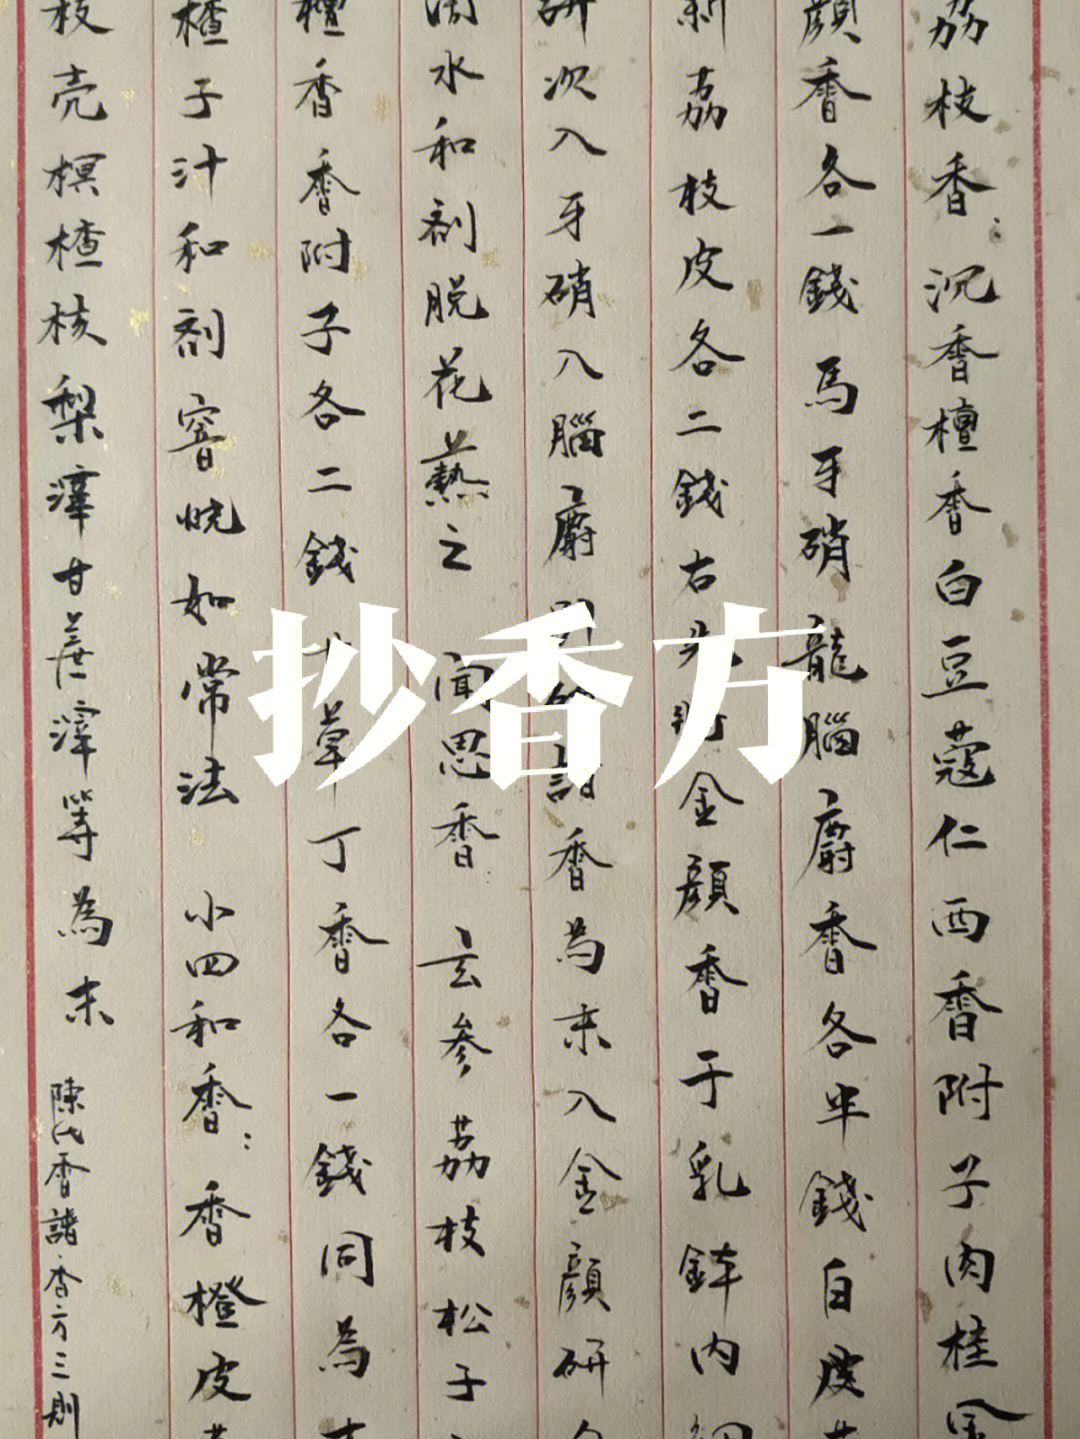 荔枝香：沉香檀香白豆蔻仁西香附子肉桂金
顔香各一錢馬牙硝龍腦麝香各半錢白芨
新荔枝皮各二錢右先將金顔香于乳鉢内細
研次入牙硝入腦麝別研諸香為末入金顔研匀
滴水和劑脱花爇之 聞思香：玄參荔枝松子
檀香香附子各二錢甘草丁香各一錢同為末
楂子汁和劑窨晄如常法 小四和香：香橙皮荔
枝壳榠楂核梨滓甘蔗滓等為末
陳氏香譜香方三則
抄香方